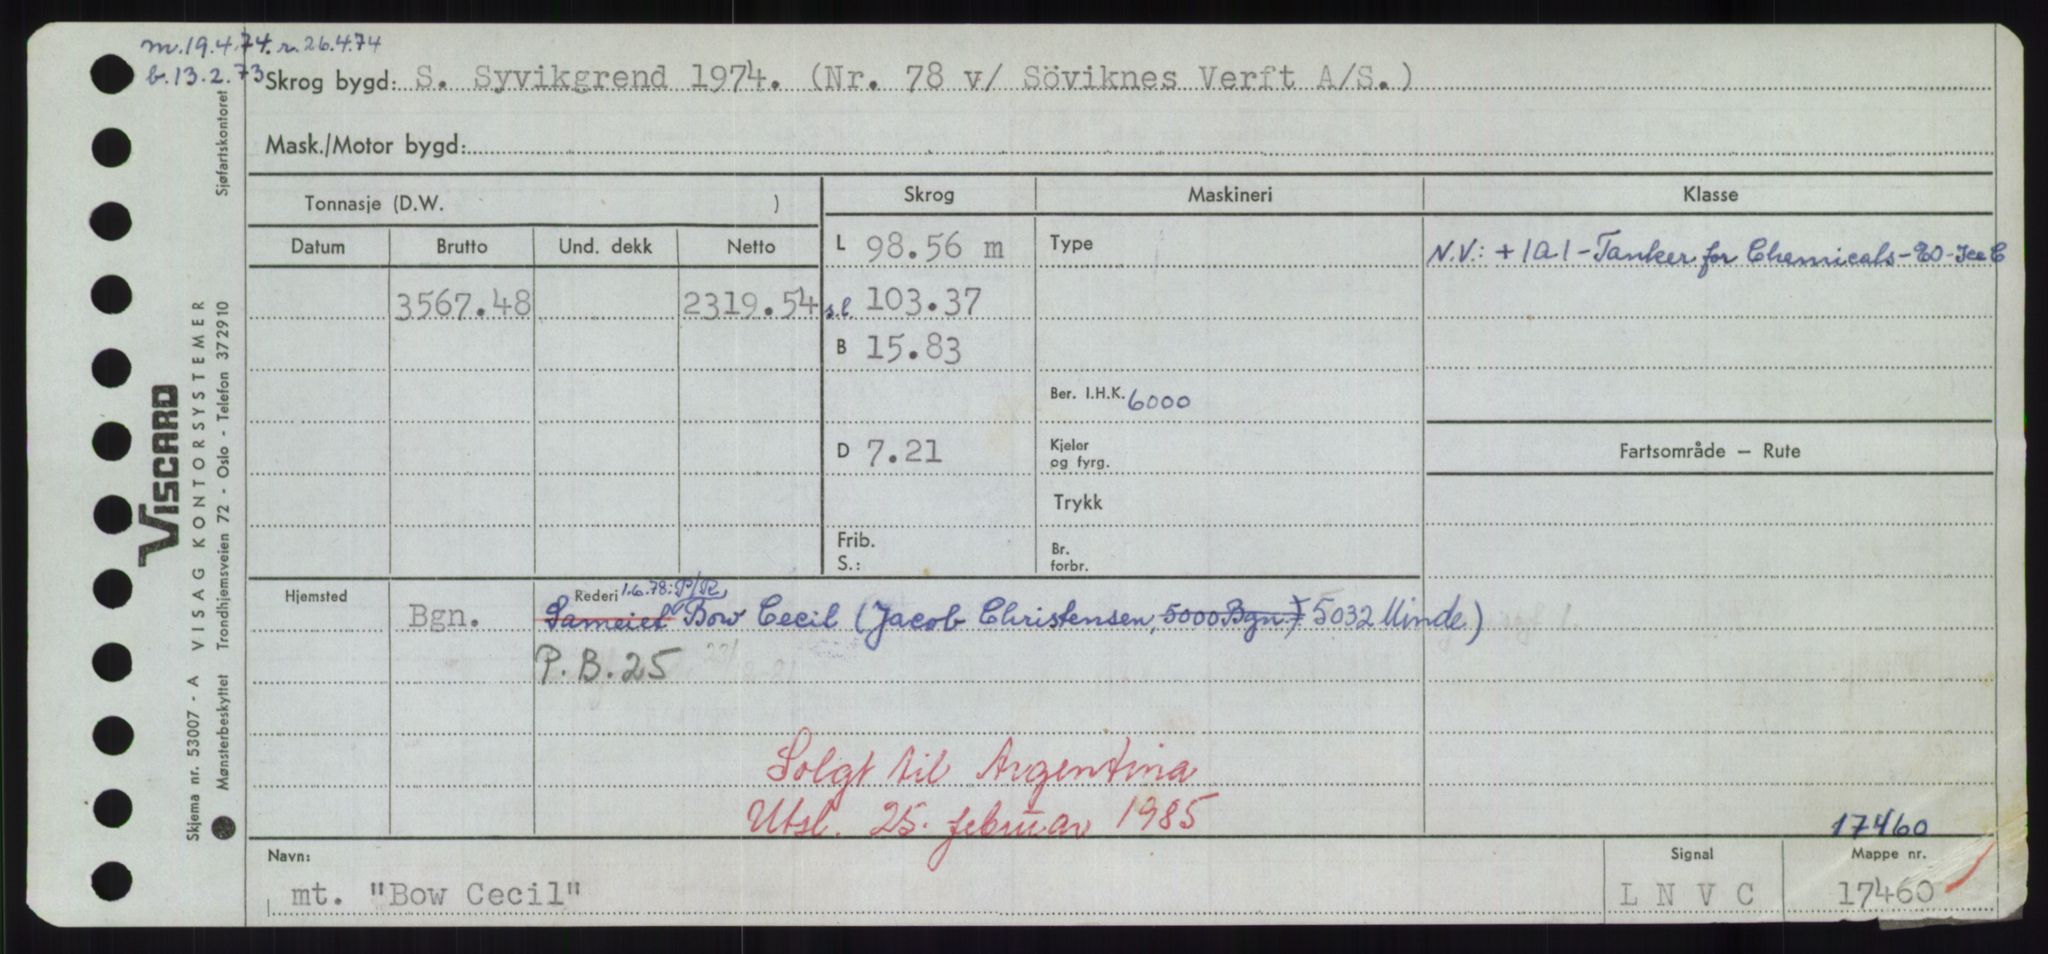 m. 19.4.74. r. 26.4.74
b. 13.2.73
Skrog bygd: S. Syvikgrend 1974. (Nr. 78 v/ Söviknes Verft A/S.)
Mask./Motor bygd:
Tonnasje (D.W. )
Skrog Maskineri Klasse
Datum Brutto Und. dekk Netto
L 98.56 m
Type
N.V.: + 1A1 - Tanker for Chemicals - EO - Ice C
3567.48 2319.54
s.l. 103.37
B 15.83
Ber. I.H.K. 6000
D 7.21
Kjeler
og fyrg.
Fartsområde – Rute
Trykk
Frib.
S.:
Br.
forbr.
Hjemsted Bgn.
Rederi 1.6.78: P/R,
Sameiet Bow Cecil (Jacob Christensen, 5000 Bgn.) 5032 Minde.)
P.B. 25
Solgt til Argentina
Utsl. 25. februar 1985
17460
Navn: Signal Mappe nr.
mt. "Bow Cecil" L N V C 17460
VISCARD
Skjema nr. 53007 - A VISAG KONTORSYSTEMER
Mønsterbeskyttet Trondhjemsveien 72 - Oslo - Telefon 372910 Sjøfartskontoret